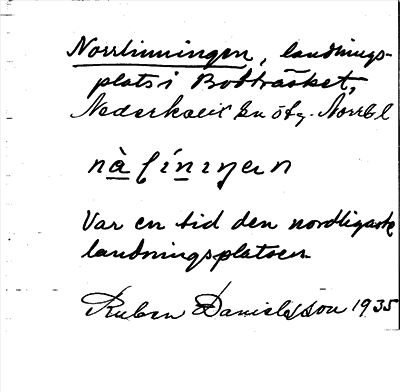 Norrlinningen, landnings-
plats i Bodträsket,
Nederkalix sn östg. Norrb l
nà l í n ı ŋ e n
Var en tid den nordligaste
landningsplatsen
Ruben Danielsson 1935